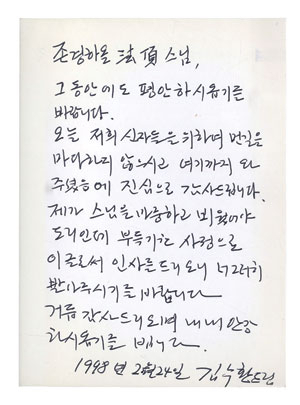 존경하올 法頂 스님,
그동안에도 평안하시옵기를
바랍니다.
오늘 저희 신자들을 위하여 먼길을
마다하지 않으시고 여기까지 와
주셨음에 진심으로 감사드립니다.
제가 스님을 마중하고 뵈웠어야
도리인데 부득기한 사정으로
이 글로써 인사를 드리오니 너그러히
받아주시기를 바랍니다
거듭 감사드리오며 내내 안강
하시옵기를 빕니다.
1998년 2월 24일 김수환드림